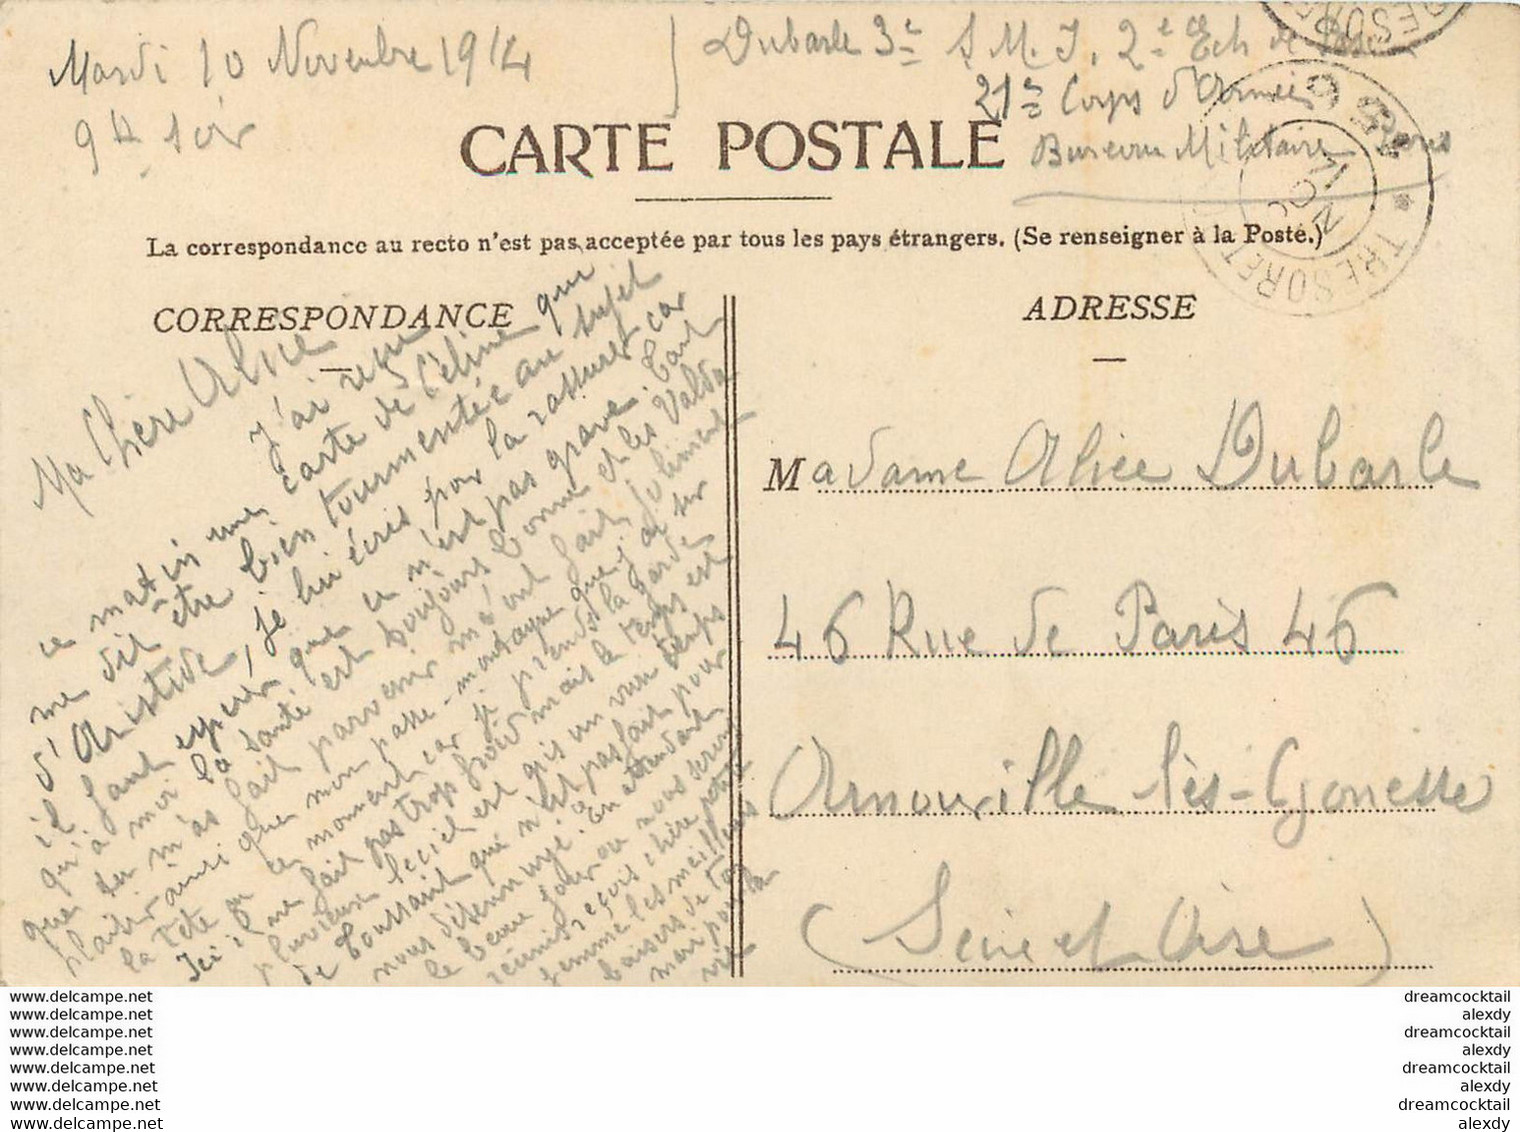 Mardi 10 Novembre 1914
9h soir
Dubarle 3e S. M. I. 2e Ech de
21e Corps d'Armée
Bureau Militaire
TRESOR ET
CARTE POSTALE
La correspondance au recto n'est pas acceptée par tous les pays étrangers. (Se renseigner à la Poste.)
CORRESPONDANCE
Ma Chère Alice
J'ai reçu
ce matin une carte de Céline qui
me dit être bien tourmentée au sujet
d'Aristide, je lui écris pour la rassurer car
il faut espérer que ce n'est pas grave. Tant
qu'à moi la santé est toujours bonne et les Valda
que tu m'as fait parvenir m'ont fait joliment
plaisir ainsi que mon passe-montagne que j'ai sur
la tête en ce moment car je prends la garde
Ici il ne fait pas trop froid mais le temps est
pluvieux le ciel est gris un vrai temps
de Toussaint qui n'est pas fait pour
nous désennuyé. En attendant
le beau jour ou nous serons
réunis, reçois chère petite
femme les meilleurs
baisers de ton
mari pour la
vie
ADRESSE
Madame Alice Dubarle
46 Rue de Paris 46
Arnouville lès-Gonesse
(Seine et Oise)
www.delcampe.net
www.delcampe.net
www.delcampe.net
www.delcampe.net
www.delcampe.net
www.delcampe.net
www.delcampe.net
www.delcampe.net
dreamcocktail
alexdy
dreamcocktail
alexdy
dreamcocktail
alexdy
dreamcocktail
alexdy